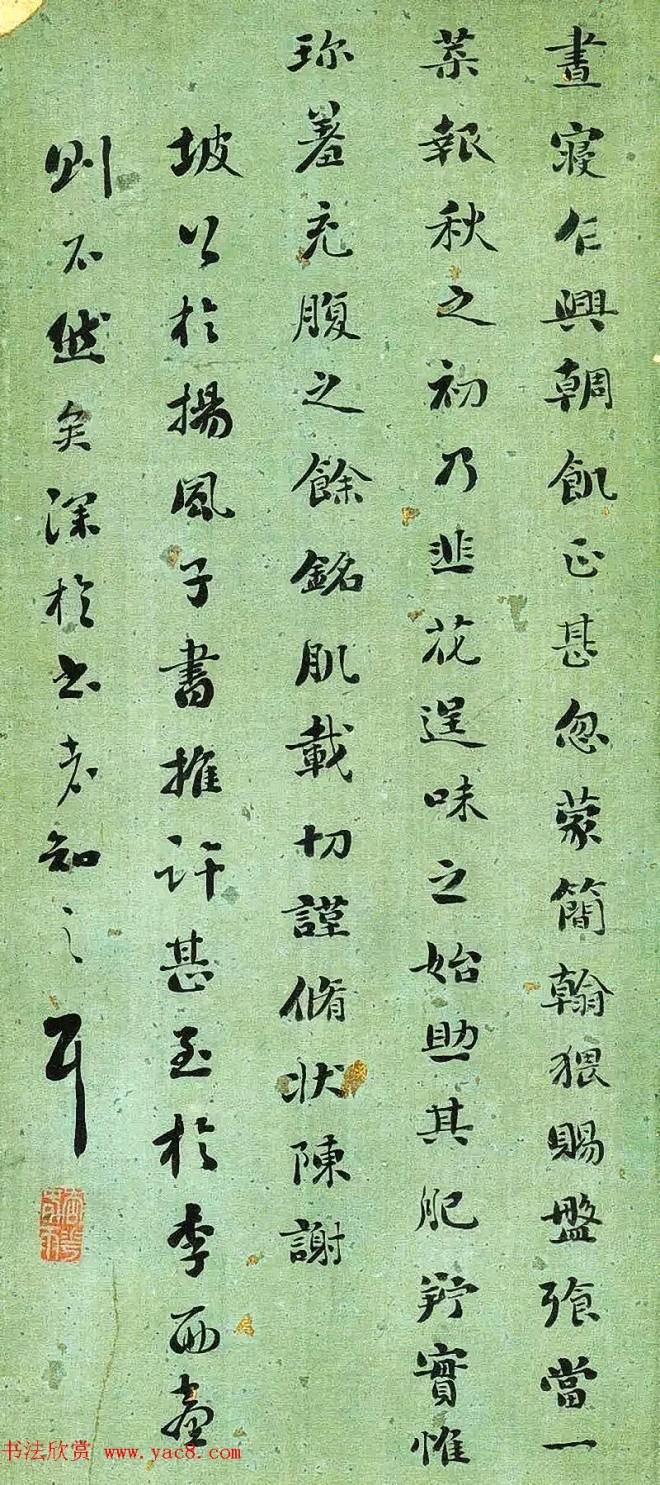 晝寢乍興輖飢正甚忽蒙簡翰猥賜盤飧當一
葉報秋之初乃韭花逞味之始助其肥羜實惟
珍羞充腹之餘銘肌載切謹脩狀陳謝
坡公於揚風子書推許甚至於李西臺
則不然矣深於書者知之耳
书法欣赏 www.yac8.com